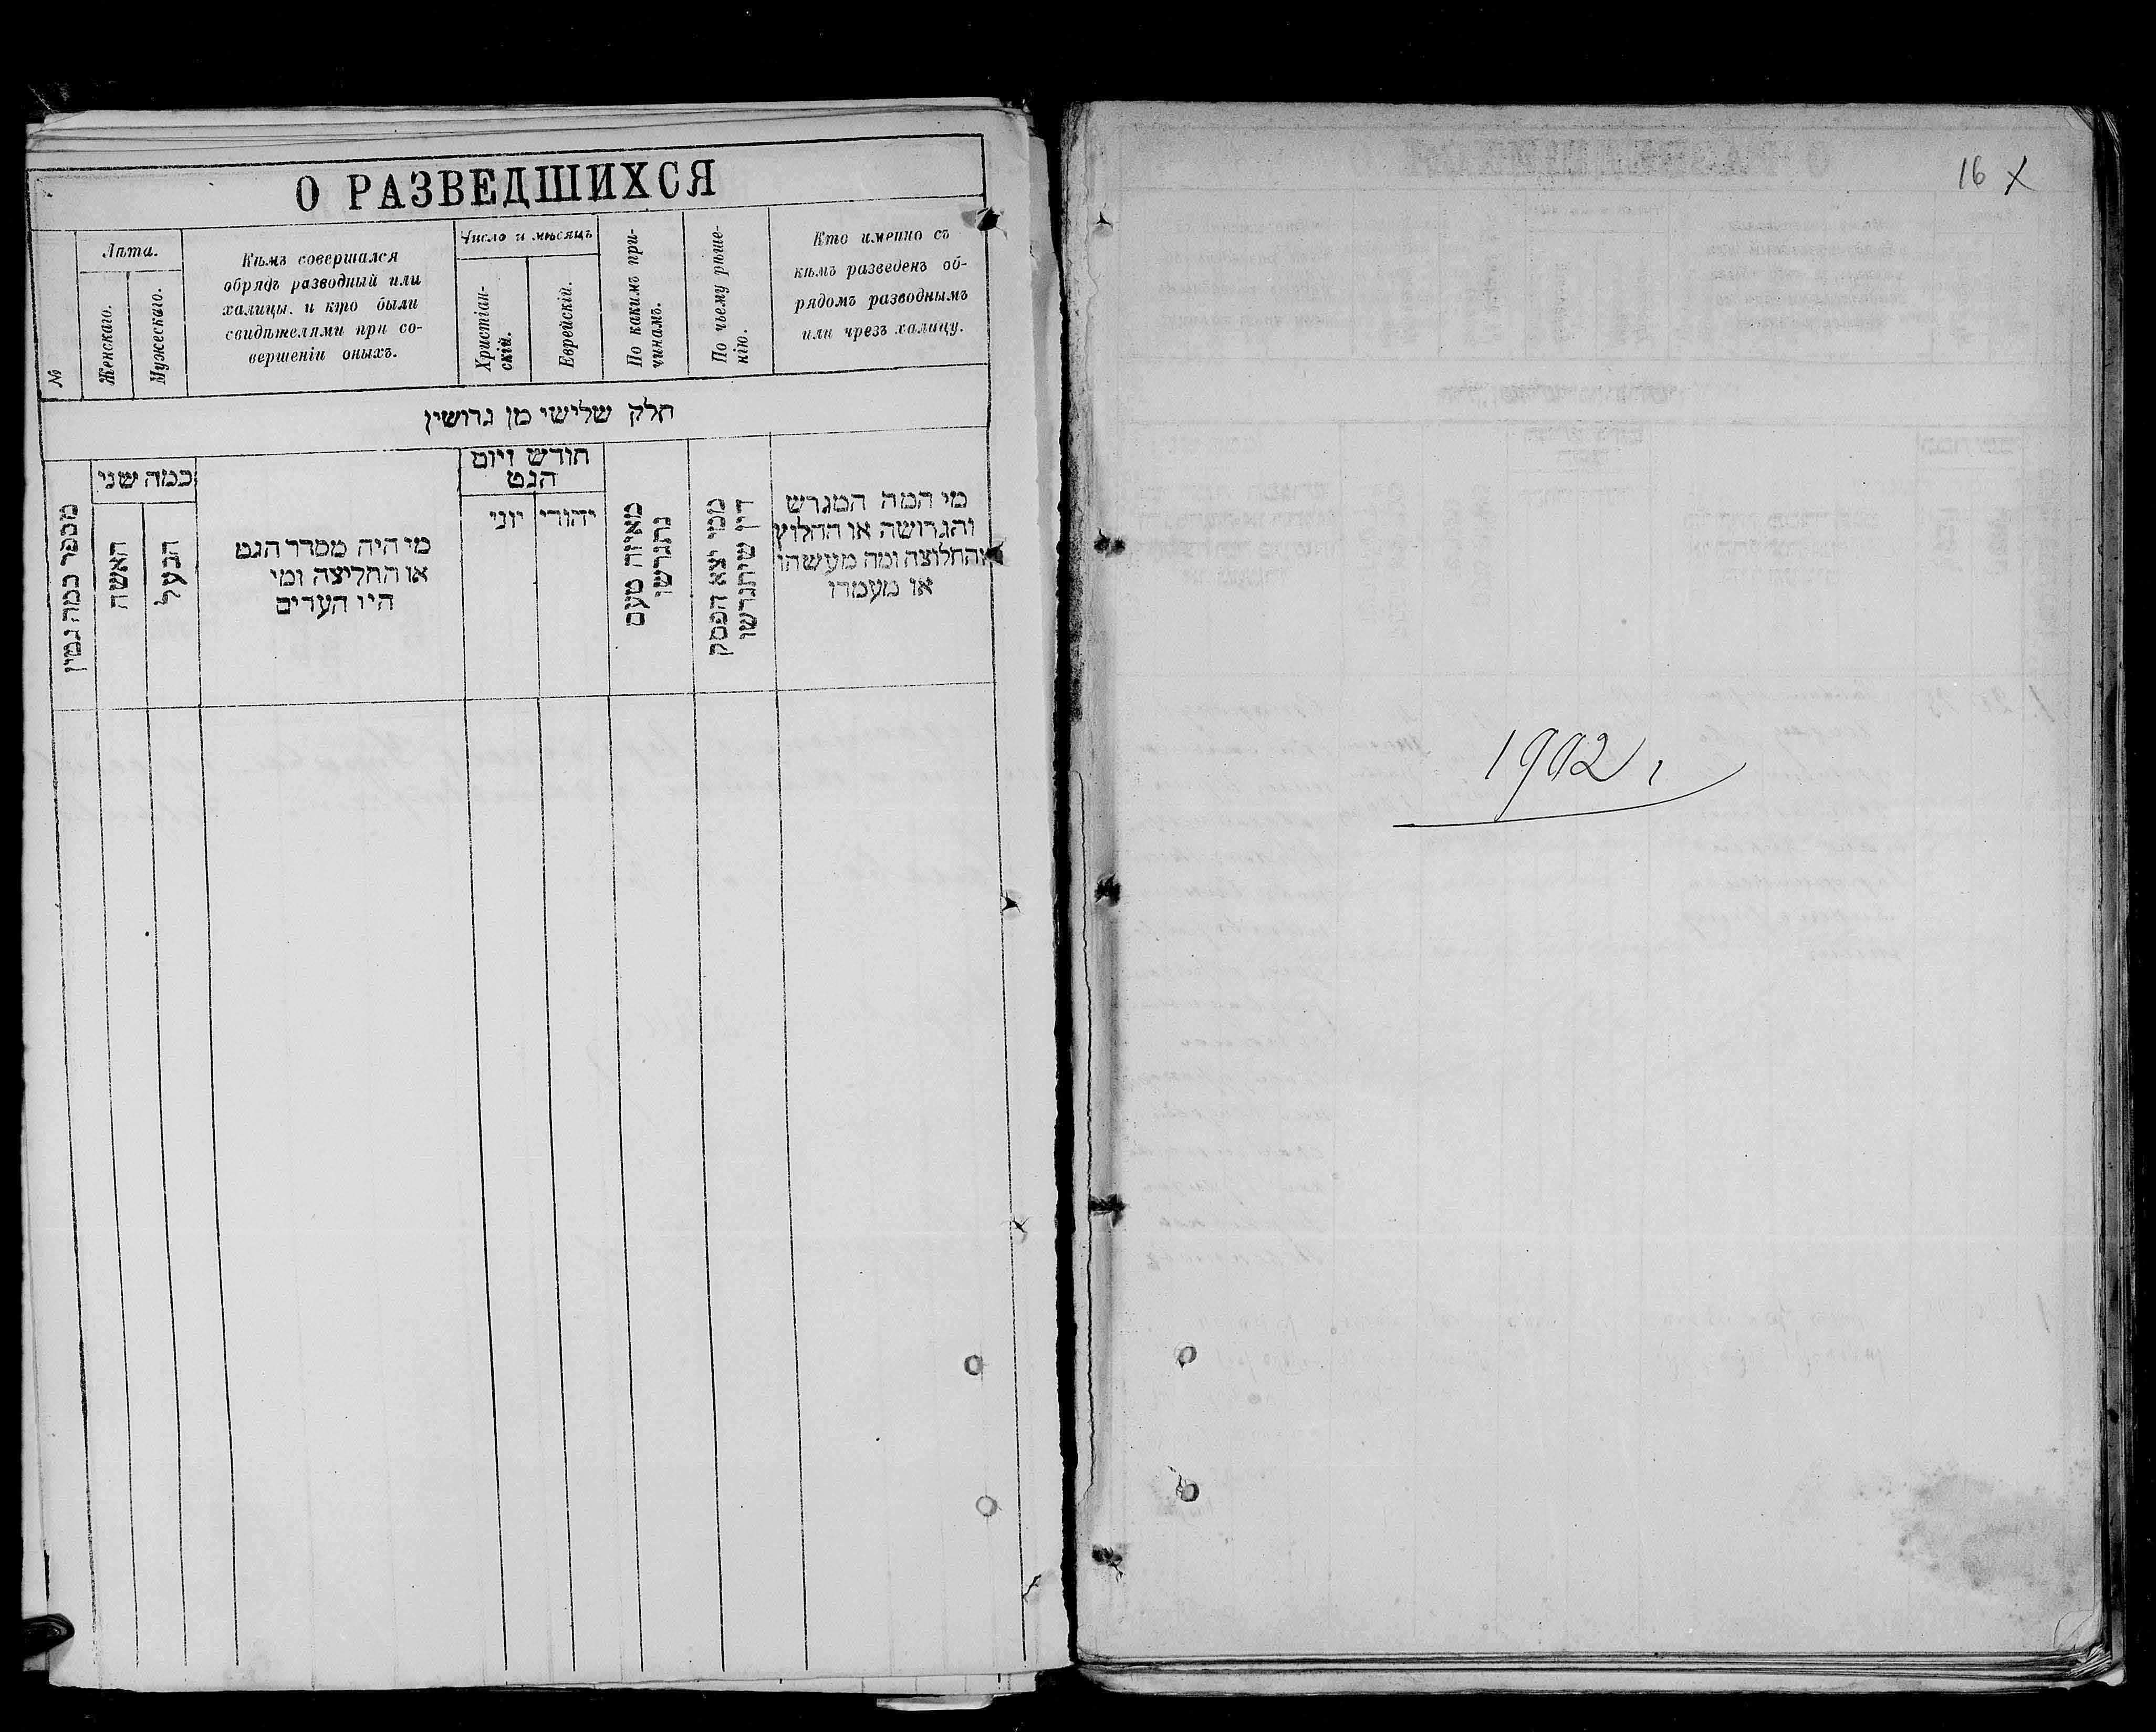 О РАЗВЕДШИХСЯ
№
Лѣта.
Женскаго.
Мужескаго.
Кѣмъ совершался
обрядъ разводный или
халицы. и кто были
свидѣтелями при со-
вершеніи оныхъ.
Число и мѣсяцъ
Христіан-
скій.
Еврейскій.
По какимъ при-
чинамъ.
По чьему рѣше-
нію.
Кто именно съ
кѣмъ разведенъ об-
рядомъ разводнымъ
или чрезъ халицу.
חלק שלישי מן גרושין
מספר כמה גטין
כמה שני
האשה
הבעל
מי היה מסדר הגט
או החליצה ומי
היו העדים
חודש ויום
הגט
יוני
יהודי
מאיזה טעם
נתגרשו
ממי יצא הפסק
דין שיתגרשו
מי המה המגרש
והגרושה או החלוץ
והחלוצה ומה מעשהו
או מעמדו
16 X
1902 г